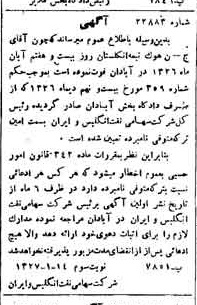 آگهی
شماره ۲۲۸۸۳
بدین‌وسیله باطلاع عموم میرساند که چون آقای
ج – ن هوك تبعه انگلستان روز بیست و هفتم آبان
ماه ۱۳۲۶ در آبادان فوت نموده است بموجب حکم
شماره ۳۰۹ مورخ بیست و نهم دیماه ۱۳۲۶ که از
طرف دادگاه بخش آبادان صادر گردیده رئیس
کل شرکت سهامی نفت انگلیس و ایران بسمت امین
ترکه متوفی نامبرده تعیین شده است
بنابراین نظر بمقررات ماده ۳۴۲ قانون امور
حسبی بعموم اخطار میشود که هر کس هر ادعائی
نسبت بترکه متوفی نامبرده دارد در ظرف ۶ ماه از
تاریخ نشر اولین آگهی برئیس شرکت سهامی نفت
انگلیس و ایران در آبادان مراجعه نموده مدارك
لازم را برای اثبات دعوی خود ارائه دهد والا هیچ
ادعائی پس از انقضای مدت مزبور پذیرفته نخواهد شد
پ–۷۸۵۱ نوبت سوم ۱۴–۱–۱۳۲۷
شرکت سهامی نفت انگلیس و ایران